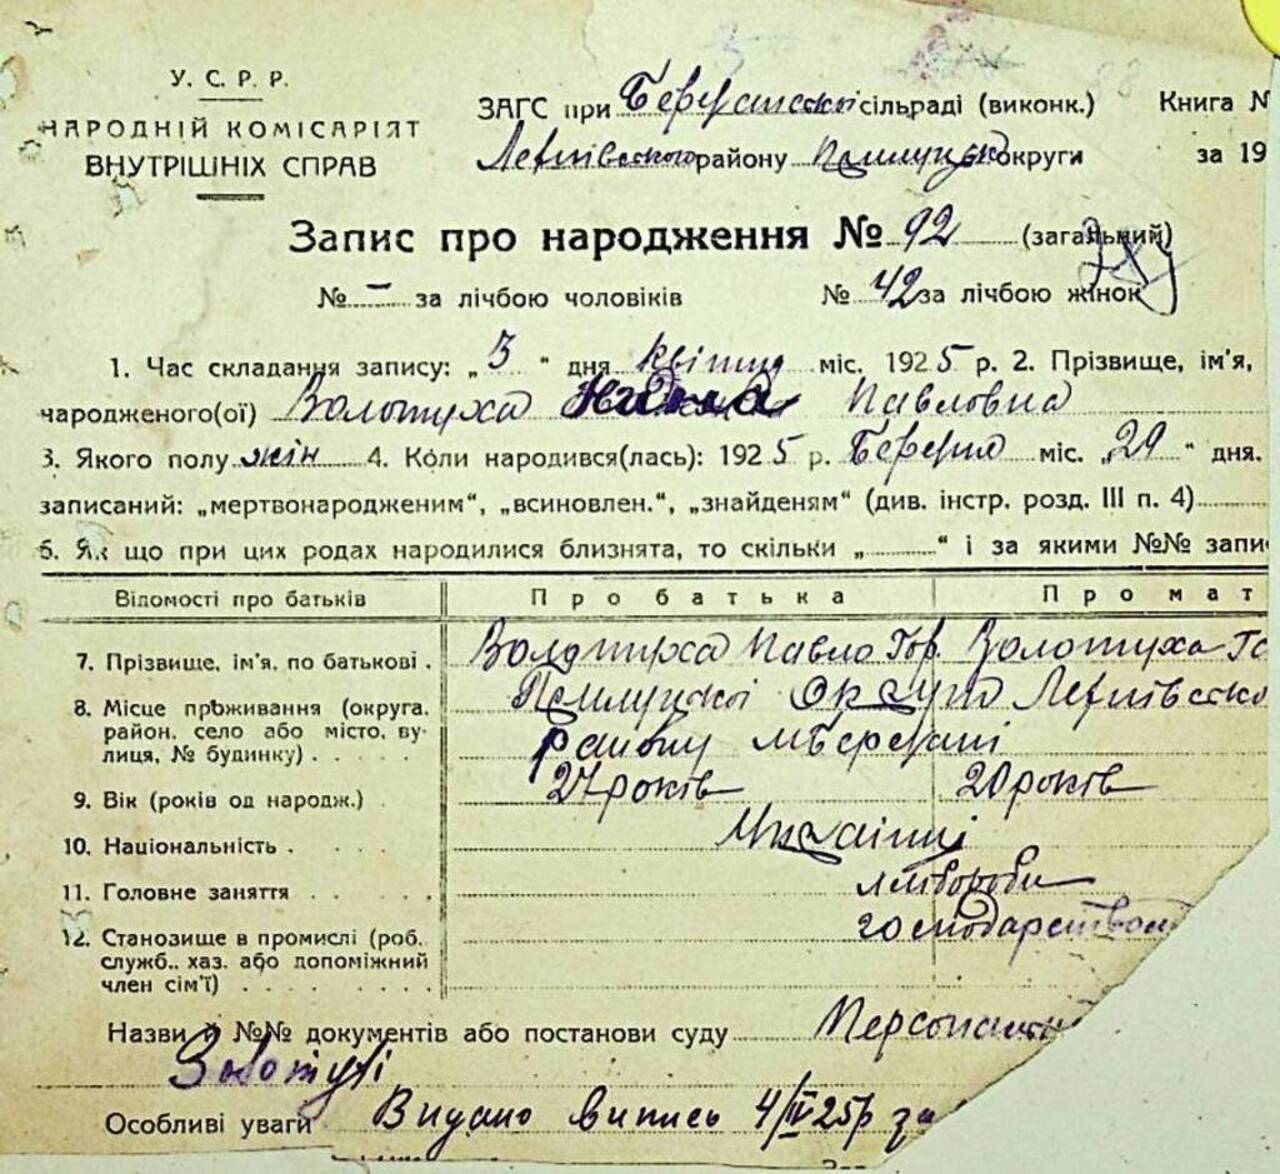 У. С. Р. Р.
НАРОДНІЙ КОМІСАРІЯТ
ВНУТРІШНІХ СПРАВ
ЗАГС при сільраді (виконк.) Книга №
району округи за 19
Запис про народження № 92 (загальний)
№ – за лічбою чоловіків № 42 за лічбою жінок
1. Час складання запису: „3“ дня Квітня міс. 1925 р. 2. Прізвище, ім'я,
народженого(ої) Золотуха Павловна
3. Якого полу жін 4. Коли народився(лась): 1925 р. Березня міс. „29“ дня.
записаний: „мертвонародженим“, „всиновлен.“, „знайденям“ (див. інстр. розд. III п. 4)
6. Як що при цих родах народилися близнята, то скільки „ “ і за якими №№ запи
Відомості про батьків Про батька Про мат
7. Прізвище, ім'я, по батькові . Золотуха Павло Гор. Золотуха
8. Місце прѣживання (округа, Округа
район, село або місто, ву- району
лиця, № будинку) . . . . .
9. Вік (років од народж.) . 27 років 20 років
10. Національність . . . . Українці
11. Головне заняття . . . . хлібороби
12. Становище в промислі (роб. господарством
служб., хаз. або допоміжний
член сім'ї) . . . . . . .
Назви й №№ документів або постанови суду
Особливі уваги Видано випись 4/IV 25р за